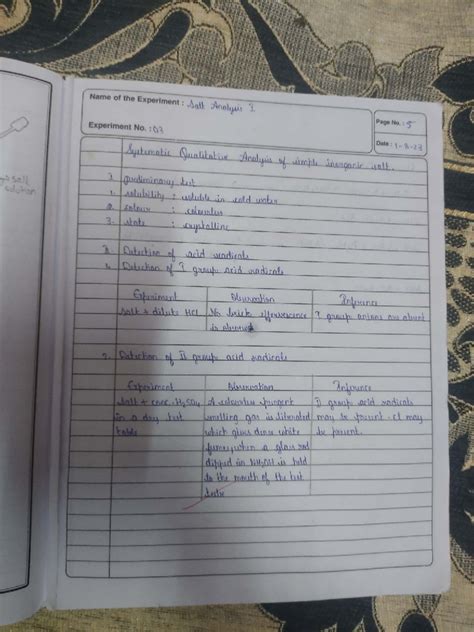 Name of the Experiment : Salt Analysis I.
Page No. : 5
Experiment No. : 03
Date : 1-8-23
Systematic Qualitative Analysis of simple Inorganic salt.
preliminary test
1. solubility : soluble in cold water
2. colour : colourless
3. state : crystalline
Detection of acid radicals
Detection of I group acid radicals
Experiment Observation Inference
Salt + dilute HCl No brisk effervescence I group anions are absent
is observed
2. Detection of II group acid radicals
Experiment Observation Inference
Salt + conc. H2SO4 A colourless pungent II group acid radicals
in a dry test smelling gas is liberated may be present - Cl may
which gives dense white be present.
fumes, when a glass rod
dipped in NH4OH is held
to the mouth of the test
tube